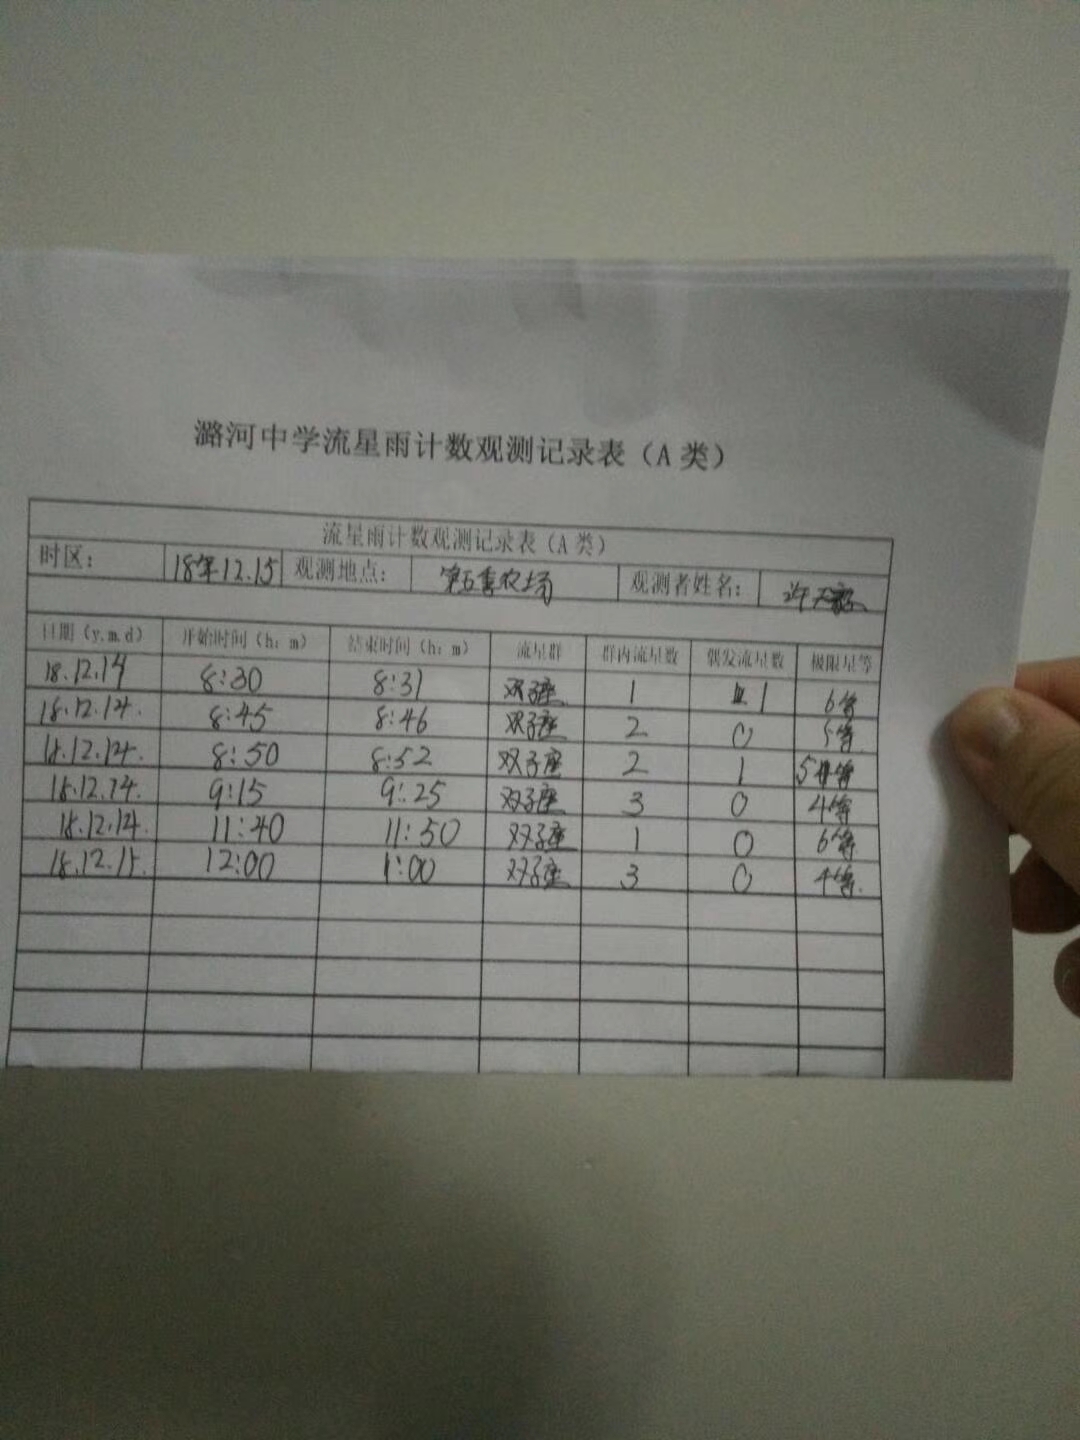 潞河中学流星雨计数观测记录表（A 类）
流星雨计数观测记录表（A 类）
时区： 18年12.15 观测地点： 第五季农场 观测者姓名： 许天
日期（y.m.d） 开始时间（h：m） 结束时间（h：m） 流星群 群内流星数 偶发流星数 极限星等
18.12.14 8:30 8:31 双子座 1 1 6等
18.12.14. 8:45 8:46 双子座 2 0 5等
18.12.14. 8:50 8:52 双子座 2 1 5等
18.12.14. 9:15 9:25 双子座 3 0 4等
18.12.14. 11:40 11:50 双子座 1 0 6等
18.12.15. 12:00 1:00 双子座 3 0 4等.